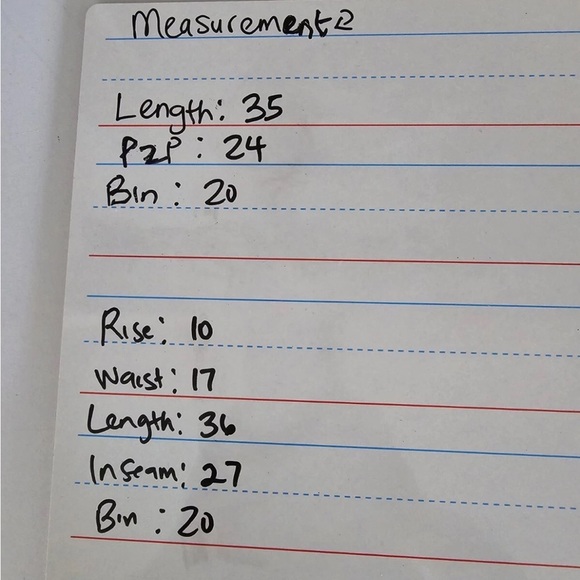 Measurements
Length: 35
P2P: 24
Bin: 20
Rise: 10
Waist: 17
Length: 36
Inseam: 27
Bin: 20